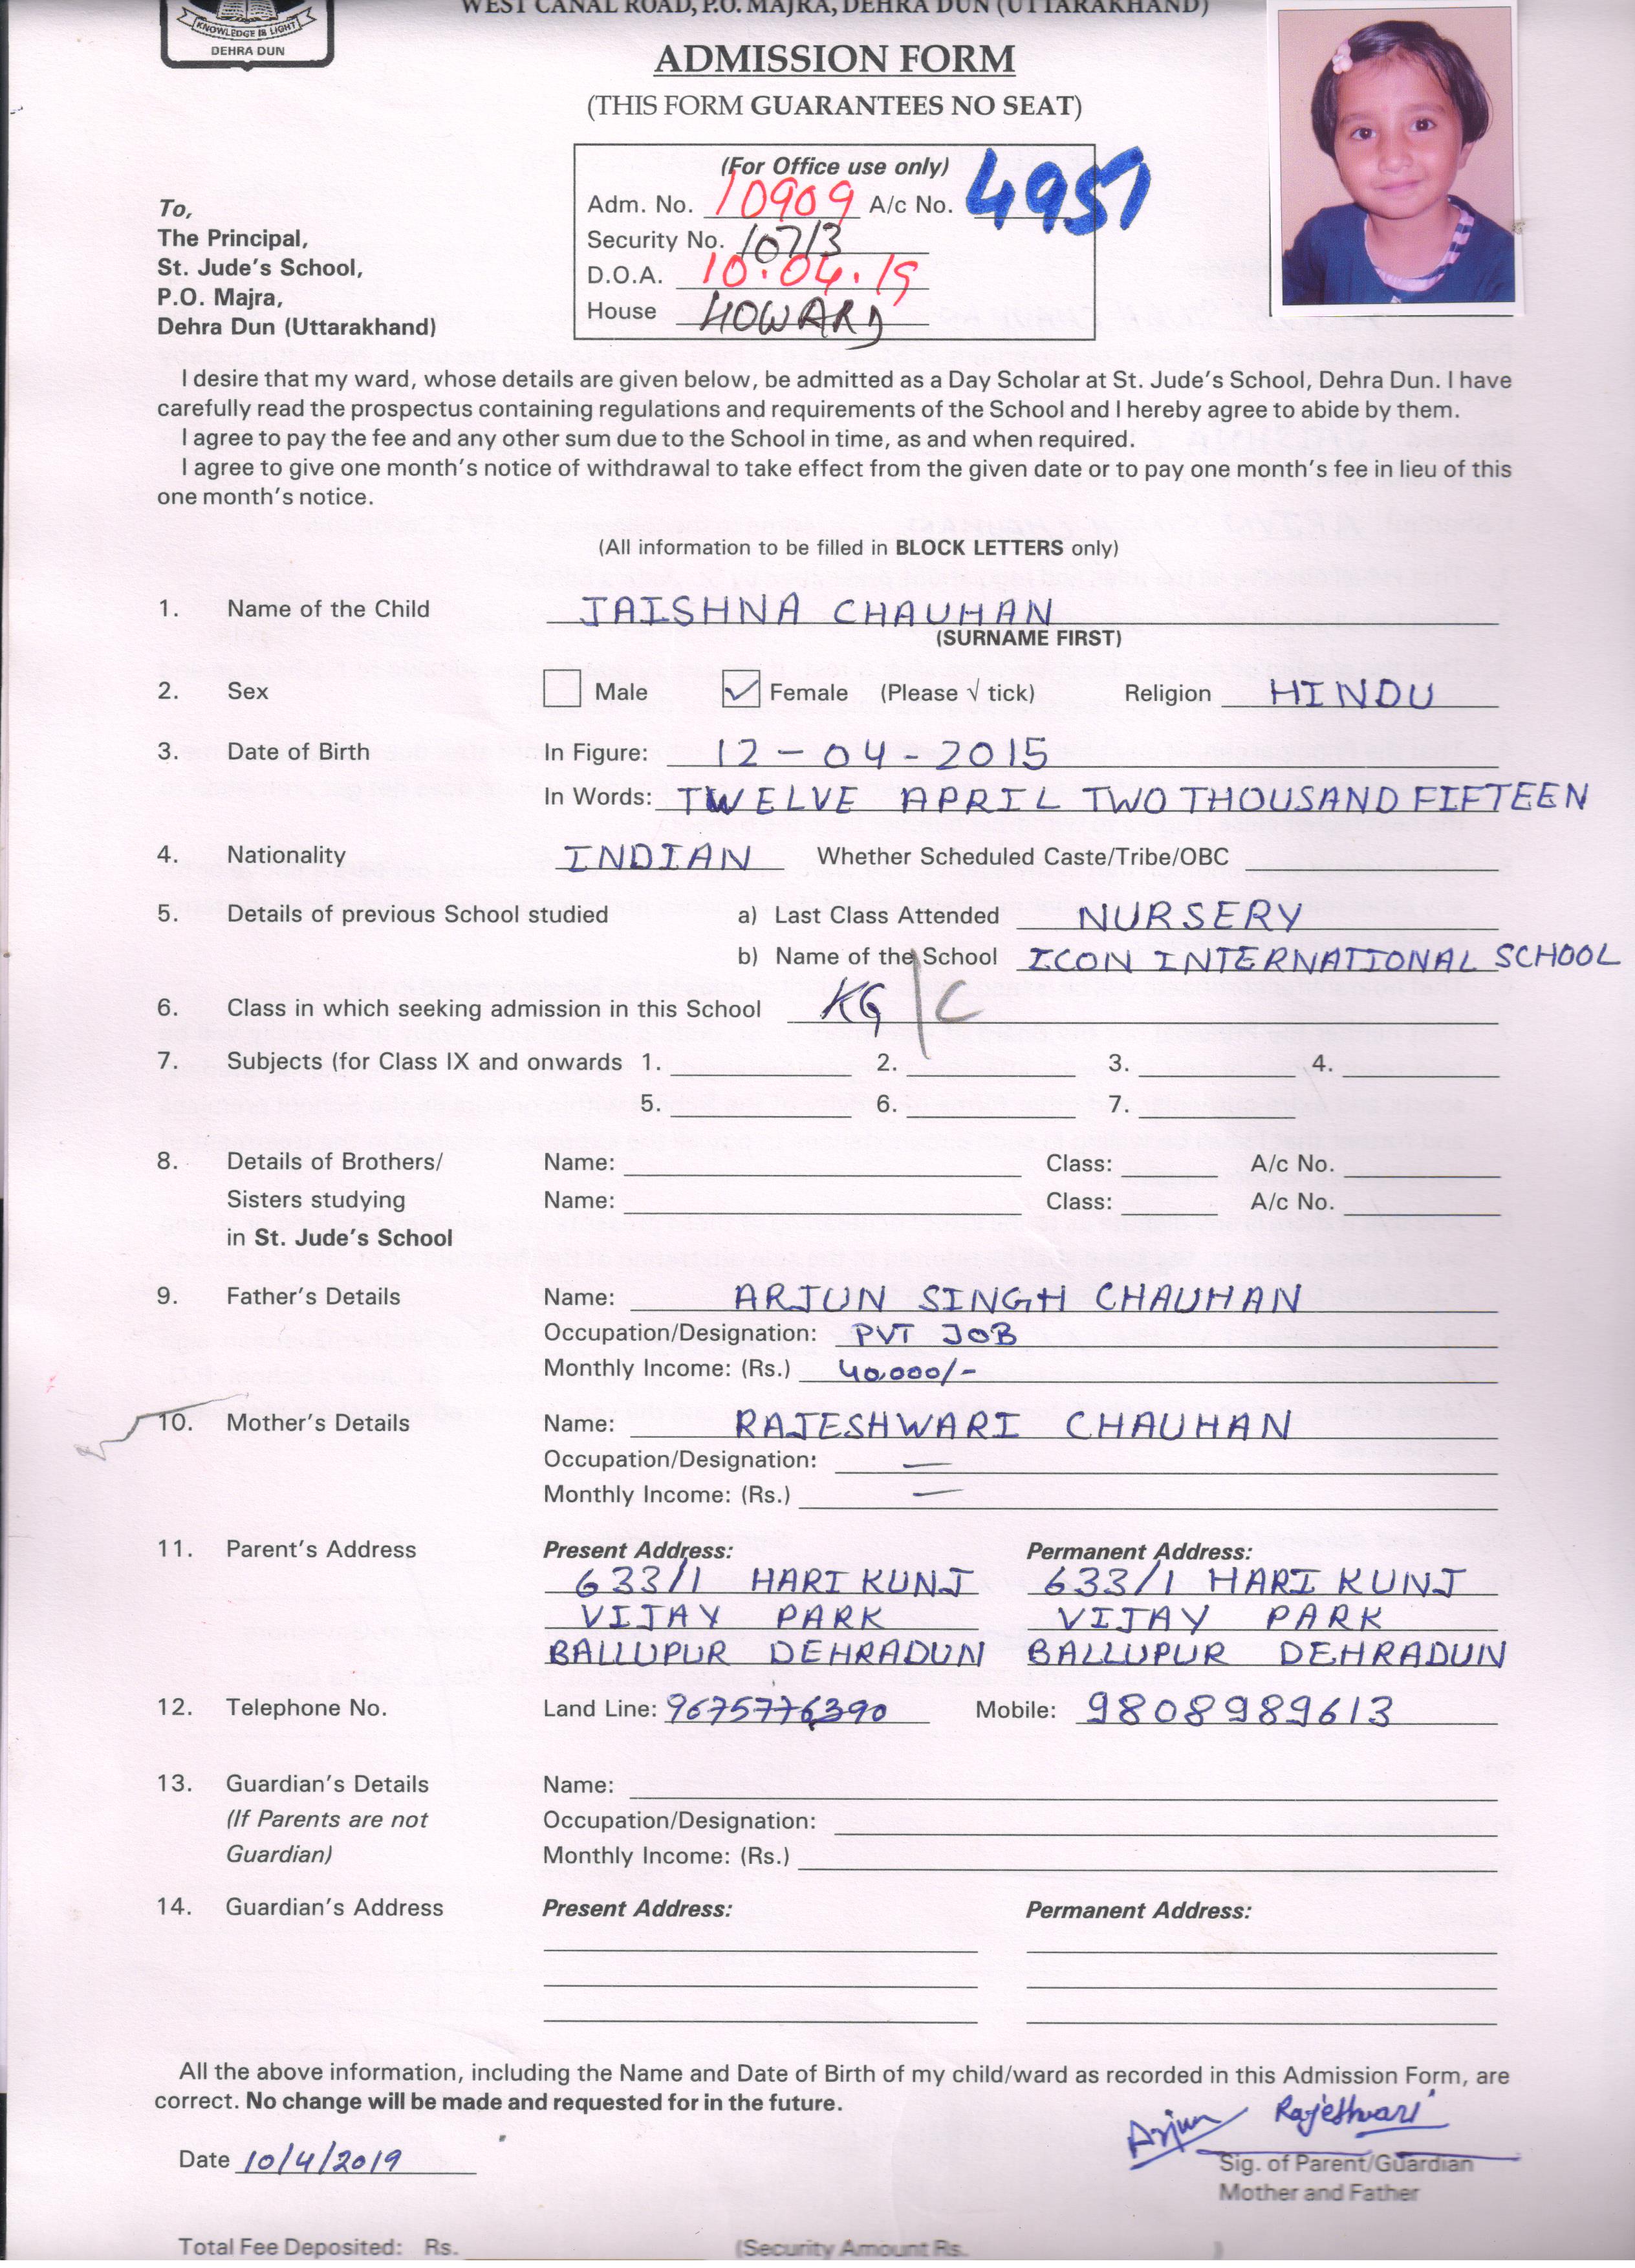 WEST CANAL ROAD, P.O. MAJRA, DEHRA DUN (UTTARAKHAND)
KNOWLEDGE IS LIGHT
DEHRA DUN
ADMISSION FORM
(THIS FORM GUARANTEES NO SEAT)
(For Office use only)
Adm. No. 10909 A/c No. 4951
Security No. 10713
D.O.A. 10.04.19
House HOWARD
To,
The Principal,
St. Jude's School,
P.O. Majra,
Dehra Dun (Uttarakhand)
I desire that my ward, whose details are given below, be admitted as a Day Scholar at St. Jude's School, Dehra Dun. I have
carefully read the prospectus containing regulations and requirements of the School and I hereby agree to abide by them.
I agree to pay the fee and any other sum due to the School in time, as and when required.
I agree to give one month's notice of withdrawal to take effect from the given date or to pay one month's fee in lieu of this
one month's notice.
(All information to be filled in BLOCK LETTERS only)
1. Name of the Child JAISHNA CHAUHAN
(SURNAME FIRST)
2. Sex Male ✓ Female (Please √ tick) Religion HINDU
3. Date of Birth In Figure: 12-04-2015
In Words: TWELVE APRIL TWO THOUSAND FIFTEEN
4. Nationality INDIAN Whether Scheduled Caste/Tribe/OBC
5. Details of previous School studied a) Last Class Attended NURSERY
b) Name of the School ICON INTERNATIONAL SCHOOL
6. Class in which seeking admission in this School KG | C
7. Subjects (for Class IX and onwards 1. 2. 3. 4.
5. 6. 7.
8. Details of Brothers/ Name: Class: A/c No.
Sisters studying Name: Class: A/c No.
in St. Jude's School
9. Father's Details Name: ARJUN SINGH CHAUHAN
Occupation/Designation: PVT JOB
Monthly Income: (Rs.) 40,000/-
10. Mother's Details Name: RAJESHWARI CHAUHAN
Occupation/Designation: —
Monthly Income: (Rs.) —
11. Parent's Address Present Address: Permanent Address:
633/1 HARI KUNJ 633/1 HARI KUNJ
VIJAY PARK VIJAY PARK
BALLUPUR DEHRADUN BALLUPUR DEHRADUN
12. Telephone No. Land Line: 9675776390 Mobile: 9808989613
13. Guardian's Details Name:
(If Parents are not Occupation/Designation:
Guardian) Monthly Income: (Rs.)
14. Guardian's Address Present Address: Permanent Address:
All the above information, including the Name and Date of Birth of my child/ward as recorded in this Admission Form, are
correct. No change will be made and requested for in the future.
Arjun Rajeshwari
Date 10/4/2019
Sig. of Parent/Guardian
Mother and Father
Total Fee Deposited: Rs. (Security Amount Rs. )